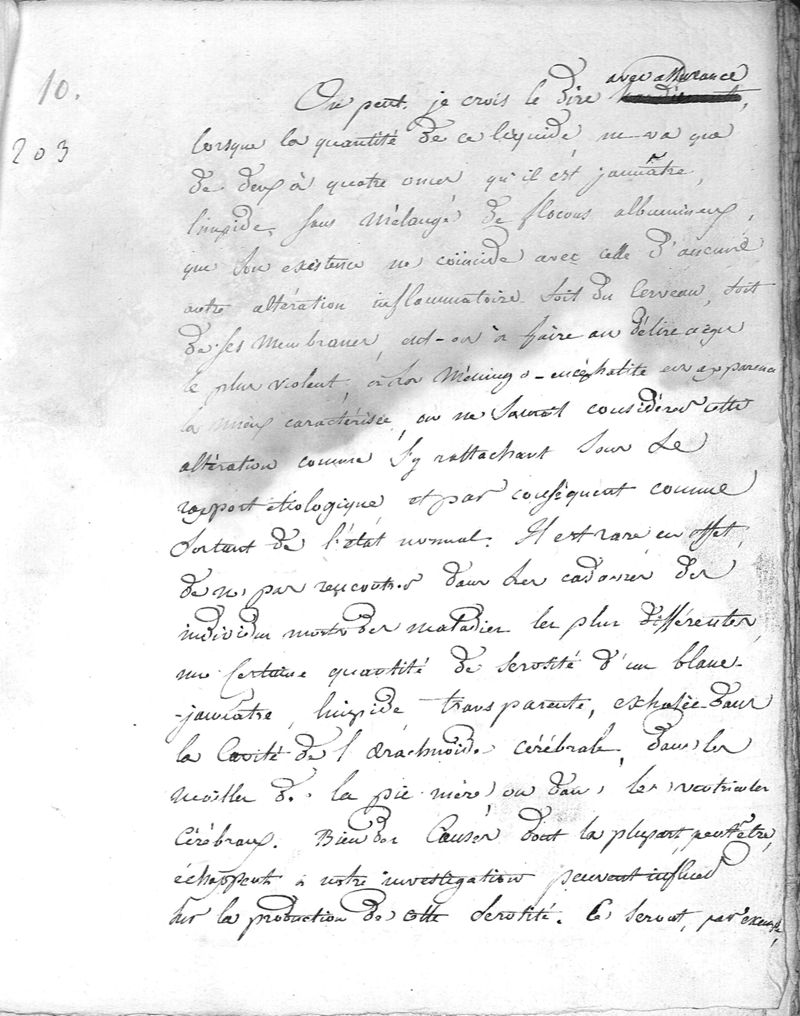 10.
203
avec assurance
On peut, je crois le dire hardiment,
lorsque la quantité de ce liquide, ne va que
de deux à quatre onces qu'il est jaunâtre,
limpide, sans mélange de flocons albumineux,
que son existence ne coïncide avec celle d'aucune
autre altération inflammatoire soit du cerveau, soit
de ses membranes, eut-on à faire au délire aigu
le plus violent, à la méningo-encéphalite en apparence
la mieux caractérisée, on ne saurait considérer cette
altération comme s'y rattachant sous le
rapport etiologique et par conséquent comme
sortant de l'état normal. Il est rare en effet,
de ne pas rencontrer dans les cadavres des
individus morts des maladies les plus différentes,
une certaine quantité de serosité d'un blanc-
-jaunâtre, limpide transparente, exhalée dans
la cavité de l'arachnoïde cérébrale, dans les
mailles de la pie mère ou dans les ventricules
cérébraux. Bien des causes dont la plupart peut être,
échappent à notre investigation peuvent influer
sur la production de cette serosité. Ce serait, par exemple,